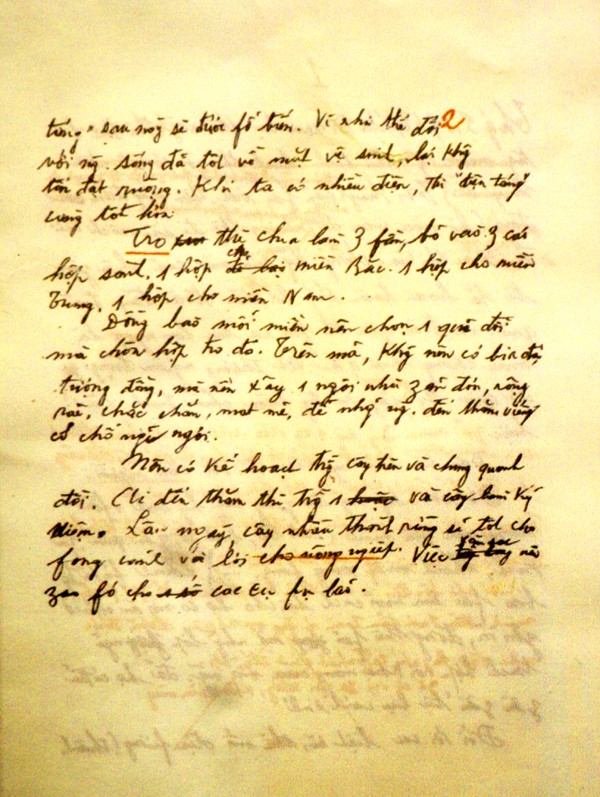 táng" sau này sẽ được fổ biến. Vì như thế đối 2
với ng. sống đã tốt về mặt vệ sinh, lại khg
tốn đất ruộng. Khi ta có nhiều điện, thì "điện táng"
càng tốt hơn.
Tro thì chia làm 3 fần, bỏ vào 3 cái
hộp sành. 1 hộp cho miền Bắc. 1 hộp cho miền
Trung. 1 hộp cho miền Nam.
Đồng bào mỗi miền nên chọn 1 quả đồi
mà chôn hộp tro đó. Trên mả, khg nên có bia đá,
tượng đồng, mà nên xây 1 ngôi nhà zản đơn, rộng
rãi, chắc chắn, mát mẻ, để những ng. đến thăm viếng
có chỗ nghỉ ngơi.
Nên có kế hoạch trồng cây trên và chung quanh
đồi. Ai đến thăm thì trồng 1 vài cây làm kỷ
niệm. Lâu ngày, cây nhiều thành rừng sẽ tốt cho
fong cảnh và lợi cho nông nghiệp. Việc săn sóc nên
zao fó cho các cụ fụ lão.